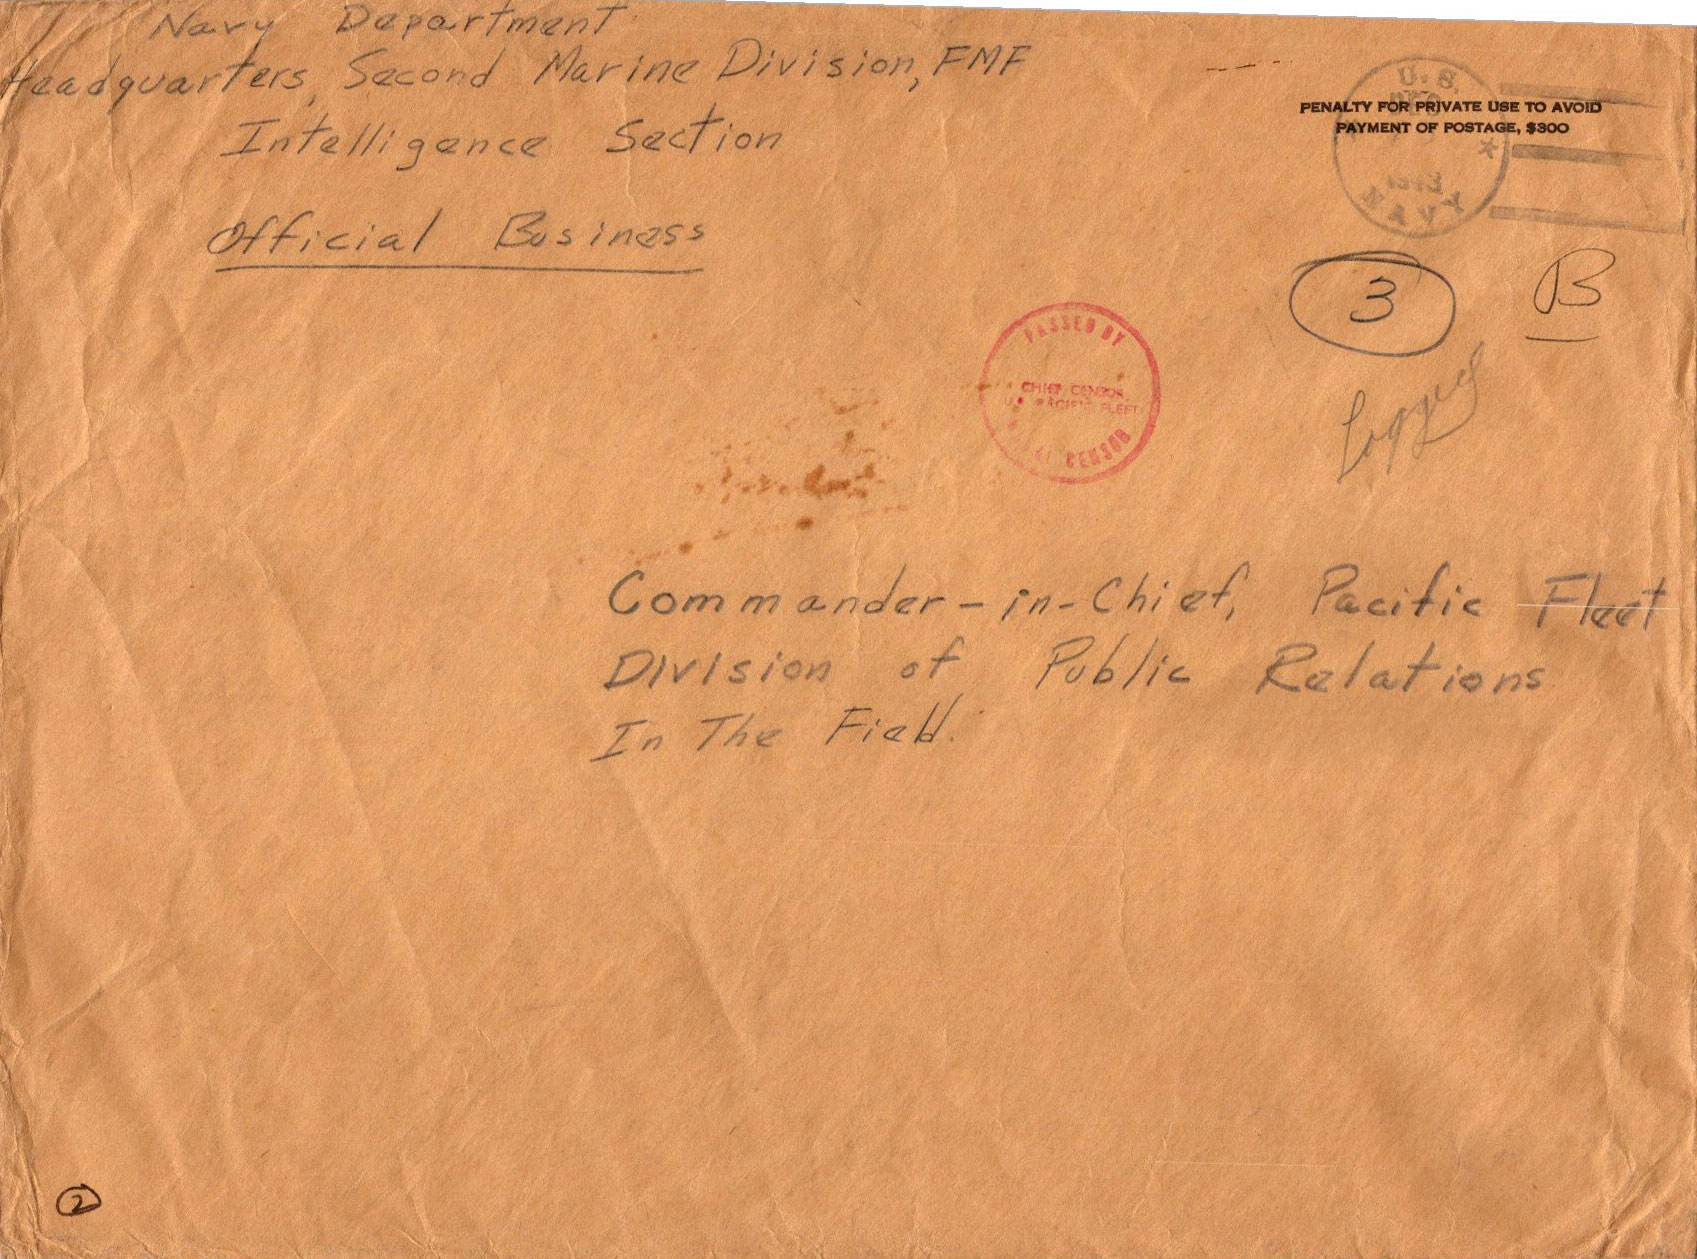 Navy Department
Headquarters, Second Marine Division, FMF
Intelligence Section
Official Business
PENALTY FOR PRIVATE USE TO AVOID
PAYMENT OF POSTAGE, $300
U.S.
DEC
1943
NAVY
3
B
Logged
PASSED BY
CHIEF CENSOR
PACIFIC FLEET
CENSOR
Commander-in-Chief, Pacific Fleet
Division of Public Relations
In The Field.
2